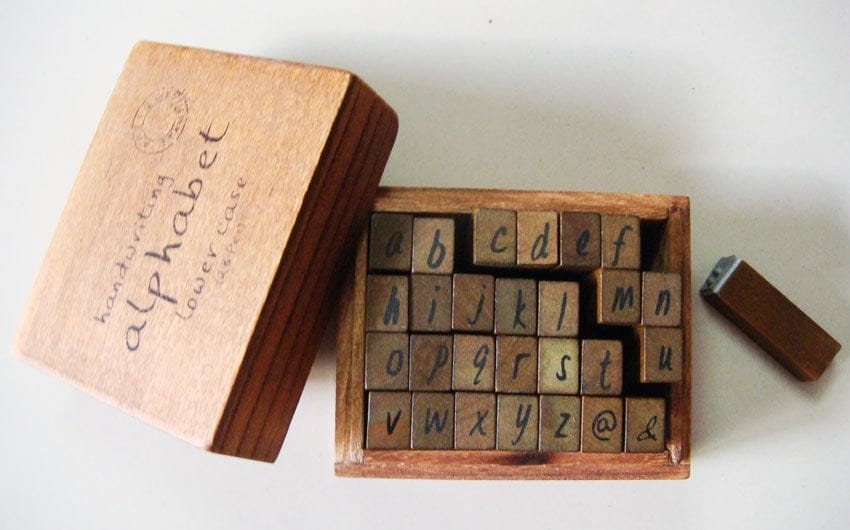 handwriting
alphabet
lower case
a b c d e f
h i j k l m n
o p q r s t u
v w x y z @ &